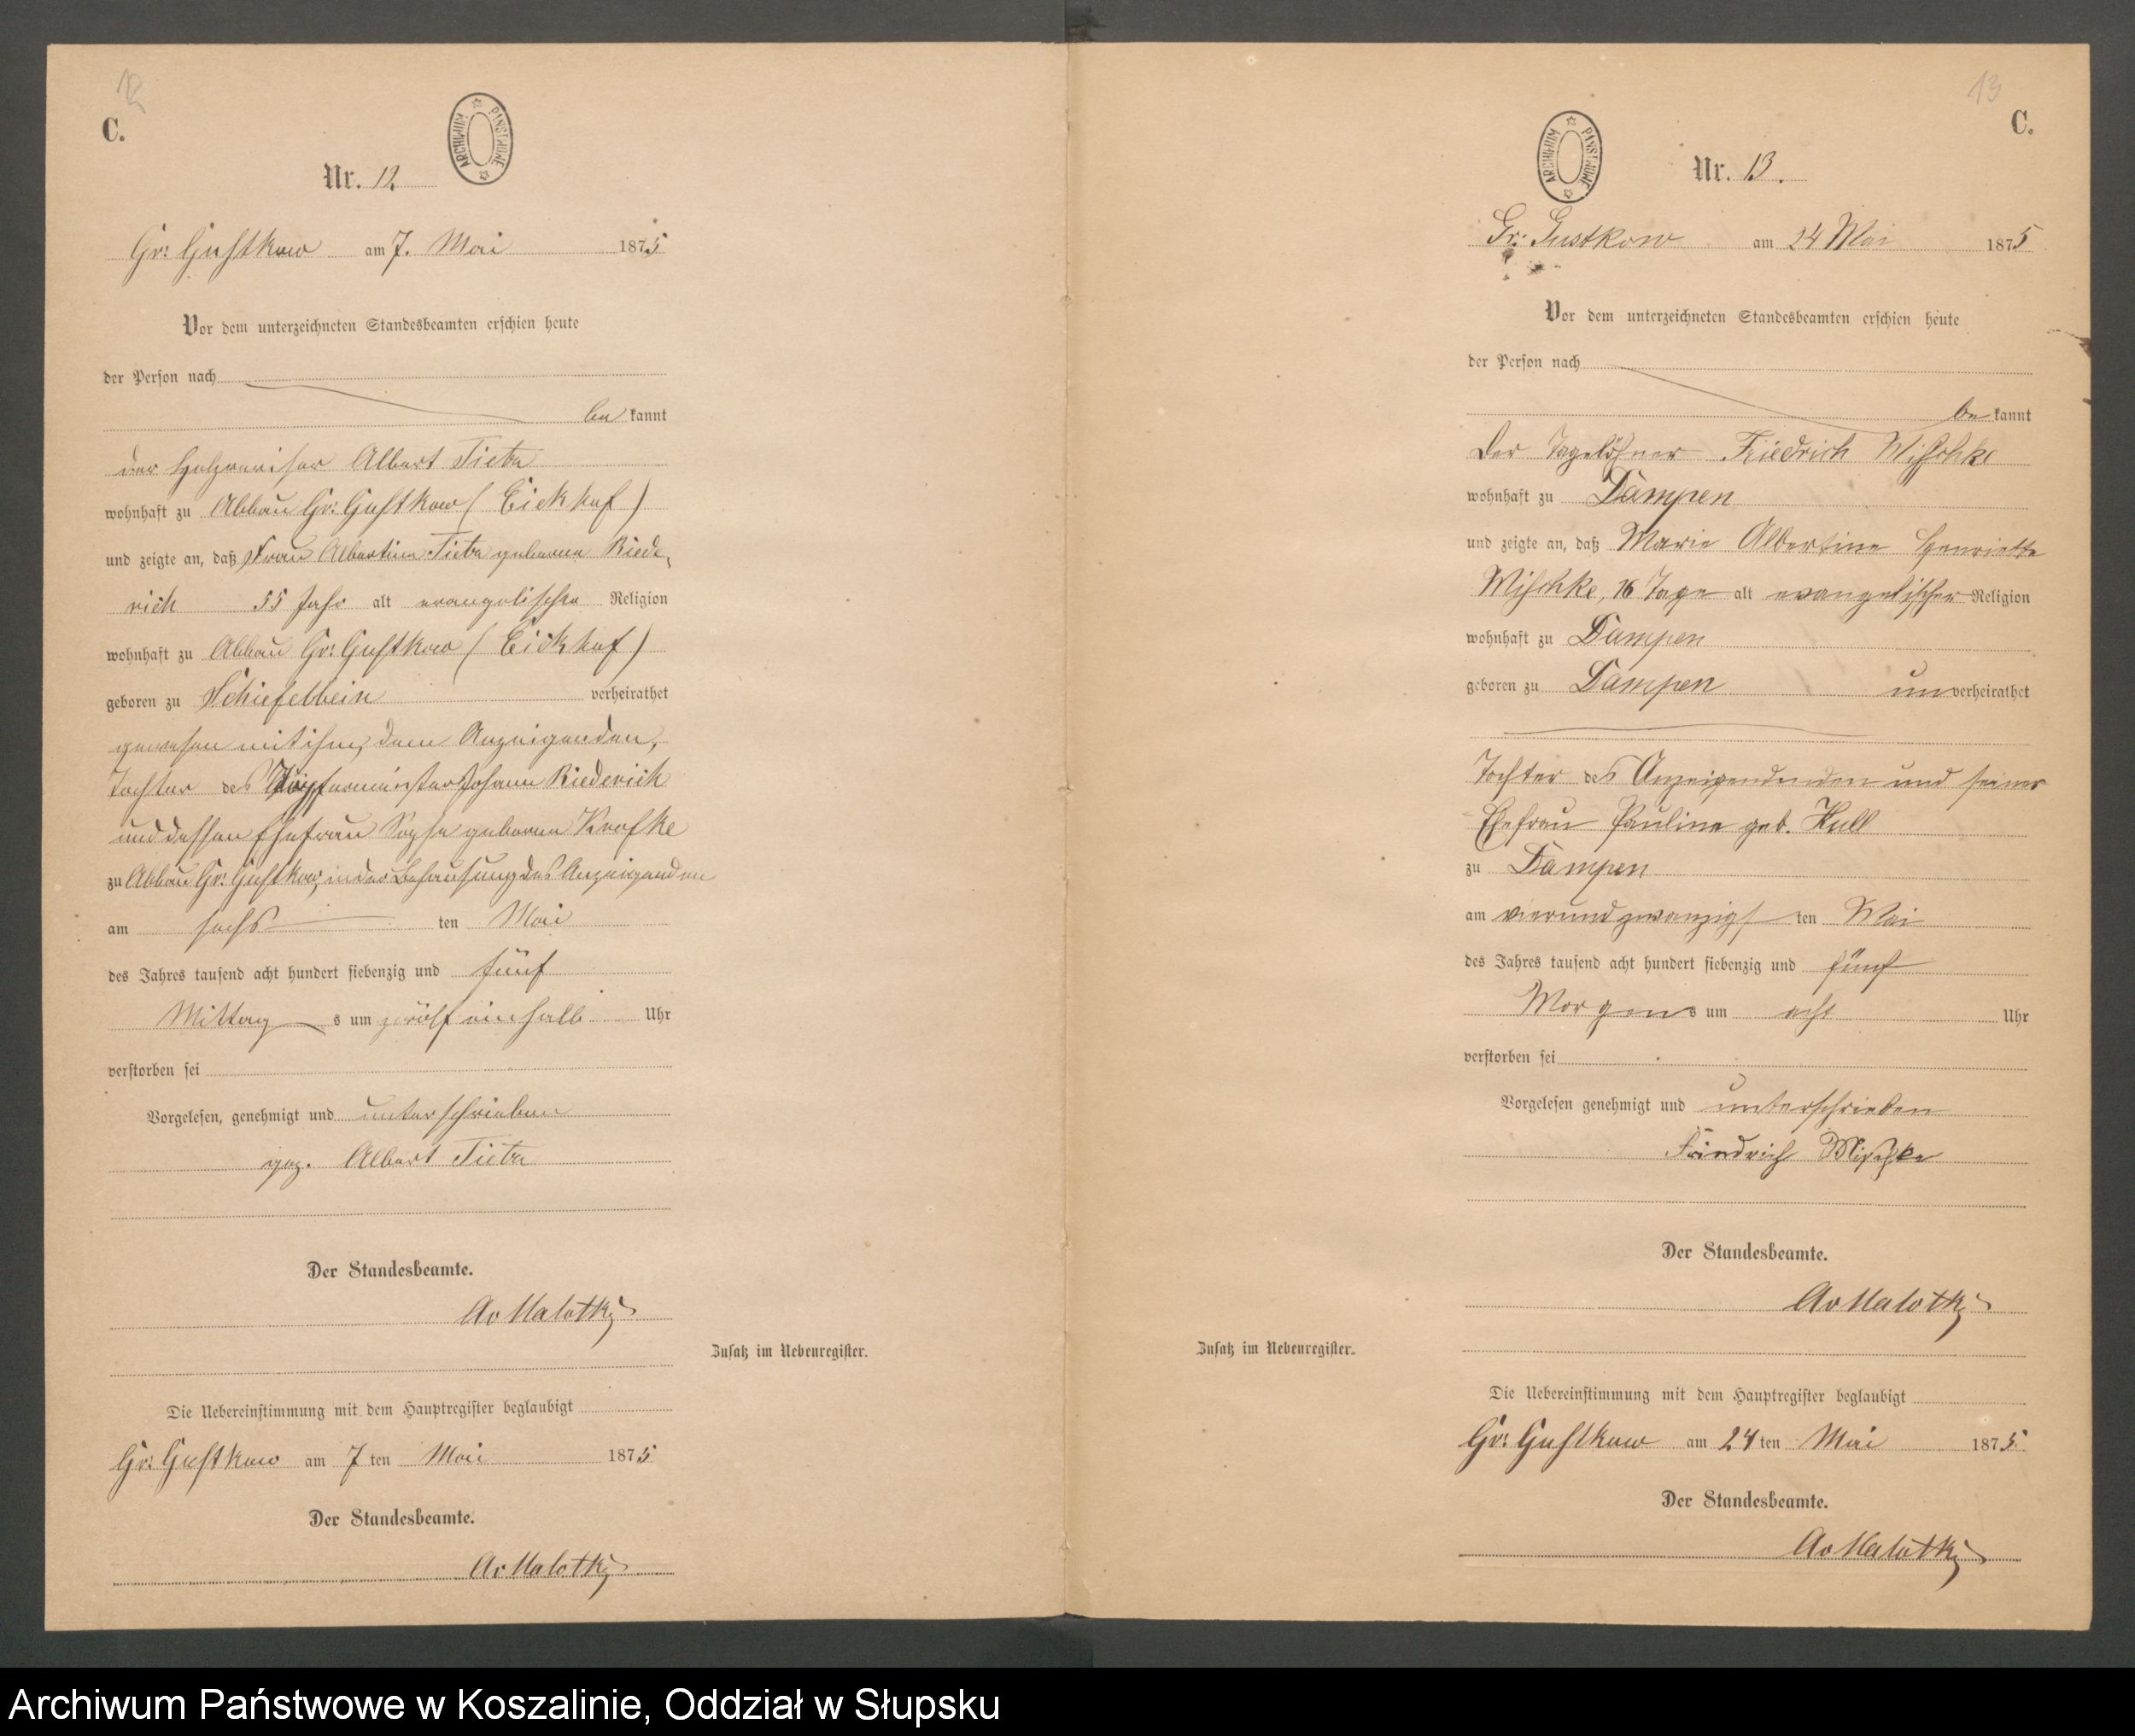 12
C.
ARCHIWUM PAŃSTWOWE
Nr. 12.
Gr: Gustkow am 7. Mai 1875
Vor dem unterzeichneten Standesbeamten erschien heute
der Person nach
be kannt
der Holzrevisor Albert Tietz
wohnhaft zu Abbau Gr: Gustkow (Eickhof)
und zeigte an, daß Frau Albertine Tietz geborne Riede-
rich 55 Jahr alt evangelischer Religion
wohnhaft zu Abbau Gr: Gustkow (Eickhof)
geboren zu Schiefelbein verheirathet
gewesen mit ihm, dem Anzeigenden,
Tochter des Töpfermeister Johann Riederich
und dessen Ehefrau Sophie geborne Krofke
zu Abbau Gr: Gustkow, in der Behausung des Anzeigenden
am sechs ten Mai
des Jahres tausend acht hundert siebenzig und fünf
Mittag s um zwölf ein halb Uhr
verstorben sei
Vorgelesen, genehmigt und unterschrieben
gez. Albert Tietz
Der Standesbeamte.
Av Malotky
Zusatz im Nebenregister.
Die Uebereinstimmung mit dem Hauptregister beglaubigt
Gr: Gustkow am 7 ten Mai 1875
Der Standesbeamte.
Av Malotky
13
C.
ARCHIWUM PAŃSTWOWE
Nr. 13.
Gr: Gustkow am 24 Mai 1875
Vor dem unterzeichneten Standesbeamten erschien heute
der Person nach
be kannt
Der Tagelöhner Friedrich Mischke
wohnhaft zu Dampen
und zeigte an, daß Marie Albertine Henriette
Mischke, 16 Tage alt evangelischer Religion
wohnhaft zu Dampen
geboren zu Dampen un verheirathet
Tochter des Anzeigendenden und seiner
Ehefrau Pauline geb. Kull
zu Dampen
am vierundzwanzigs ten Mai
des Jahres tausend acht hundert siebenzig und fünf
Morgen s um acht Uhr
verstorben sei
Vorgelesen genehmigt und unterschrieben
Friedrich Mischke
Der Standesbeamte.
Av Malotky
Zusatz im Nebenregister.
Die Uebereinstimmung mit dem Hauptregister beglaubigt
Gr: Gustkow am 24 ten Mai 1875
Der Standesbeamte.
Av Malotky
Archiwum Państwowe w Koszalinie, Oddział w Słupsku